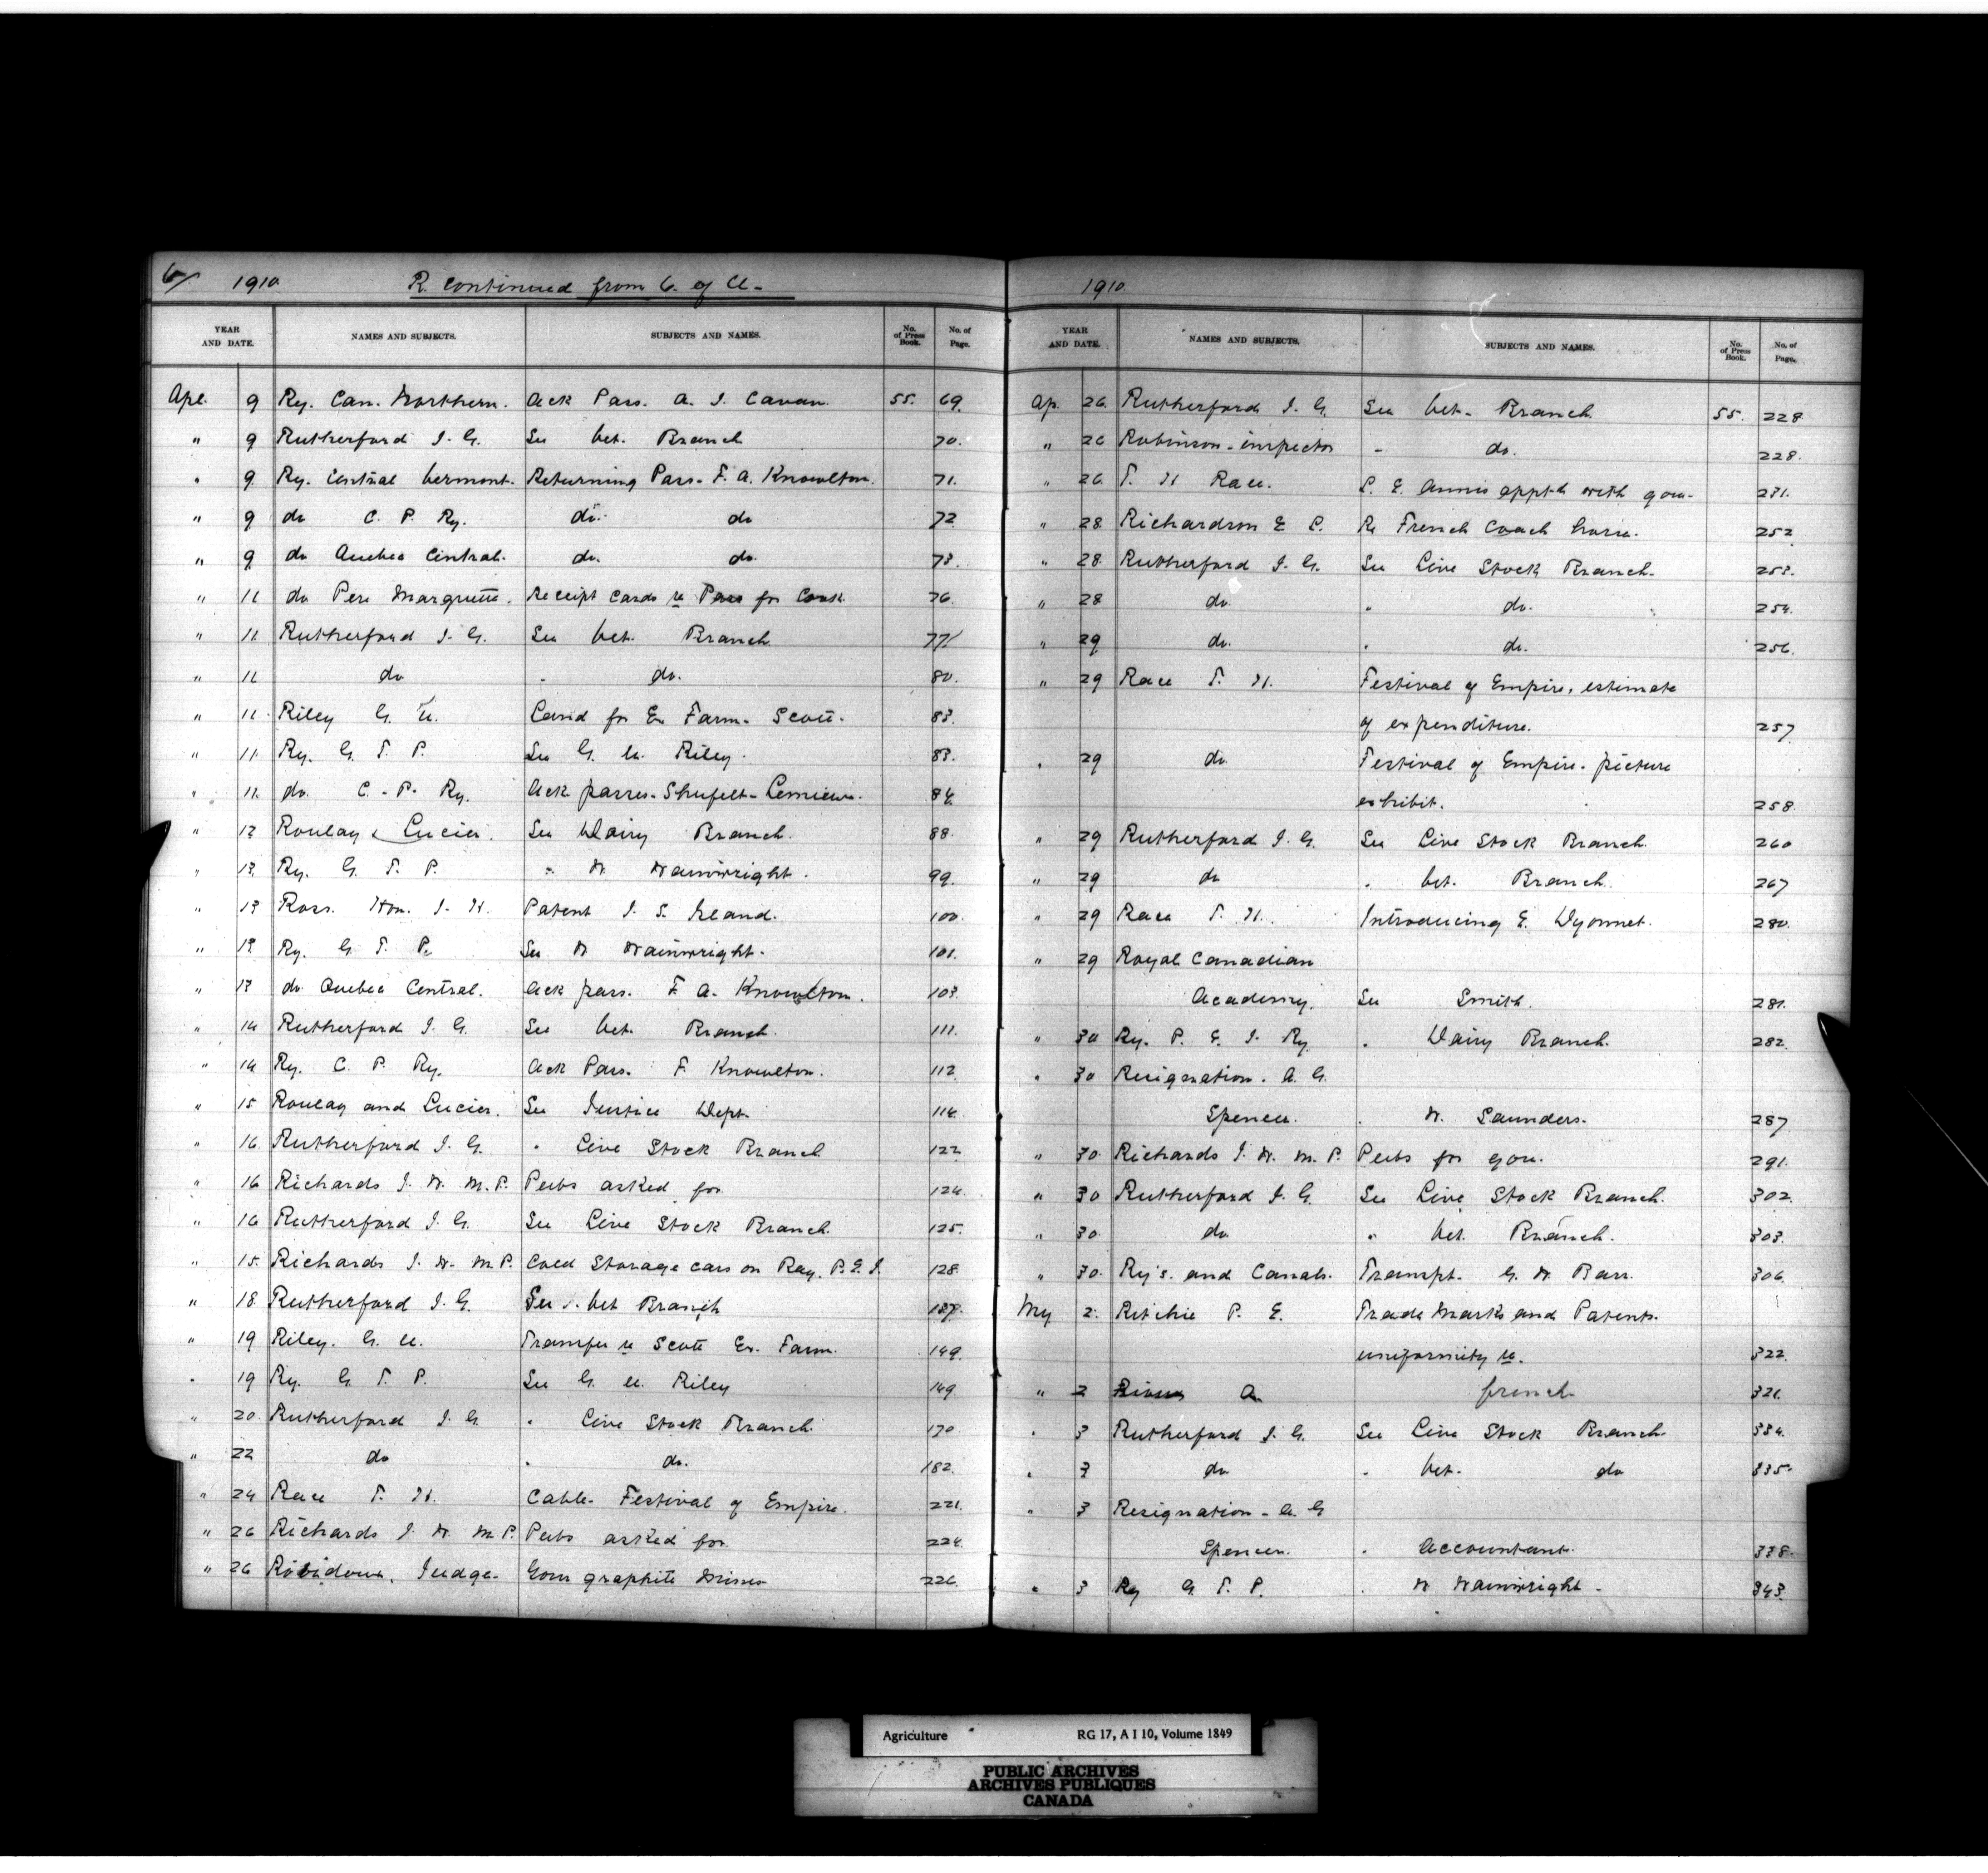 6/ 1910 R. continued from C. of A.
YEAR AND DATE. NAMES AND SUBJECTS. SUBJECTS AND NAMES. No. of Press Book. No. of Page.
Apl. 9 Ry. Can. Northern. Ack Pass. A. J. Cavan. 55. 69.
" 9 Rutherford J. G. See Vet. Branch 70.
" 9. Ry. Central Vermont. Returning Pass. F. A. Knowlton. 71.
" 9 do C. P. Ry. do. do 72
" 9. do Quebec Central. do. do. 73.
" 11 do Pere Marquette. Receipt cards re Pass for Cook. 76.
" 11. Rutherford J. G. See Vet. Branch. 77
" 11 do " do. 80.
" 11. Riley G. U. Land for Ex Farm. Scott. 83.
" 11. Ry. G. T. P. See G. U. Riley. 83.
" 11. do. C. P. Ry. Ack passes. Shufelt - Lemieux. 84.
" 12 Roulay & Lucier. See Dairy Branch. 88.
" 13. Ry. G. T. P. " W Wainwright. 99.
" 13 Ross. Hon. J. H. Patent J. S. Island. 100.
" 13. Ry. G. T. P. See W Wainwright. 101.
" 13 do Quebec Central. Ack pass. F. A. Knowlton. 103.
" 14 Rutherford J. G. See Vet. Branch. 111.
" 14 Ry. C. P. Ry. Ack Pass. F. Knowlton. 112
" 15 Roulay and Lucier. See Justice Dept. 114.
" 16. Rutherford J. G. " Live Stock Branch 122
" 16 Richards J. W. M.P. Pubs asked for 124.
" 16 Rutherford J. G. See Live Stock Branch. 125.
" 15. Richards J. W. M.P. Cold Storage cars on Ray. P.E.I. 128.
" 18 Rutherford J. G. See Vet Branch 137.
" 19 Riley. G. U. Transfer re Scott Ex. Farm. 149.
" 19 Ry. G. T. P. See G. U. Riley 149.
" 20. Rutherford J. G. " Live Stock Branch. 170
" 22 do " do. 182.
" 24 Race T. H. Cable. Festival of Empire. 221.
" 26 Richards J. W. M.P. Pubs asked for. 224.
" 26 Robidoux. Judge. Gour graphite mines 226.
1910
YEAR AND DATE. NAMES AND SUBJECTS. SUBJECTS AND NAMES. No. of Press Book. No. of Page.
Ap. 26. Rutherford J. G. See Vet. Branch. 55. 228
" 26 Robinson - inspector " do. 228.
" 26. T. H Race. P. E. Annis appt-t with gov. 231.
" 28 Richardson E P. Re French Coach horse. 252
" 28. Rutherford J. G. See Live Stock Branch. 253.
" 28 do. " do. 254.
" 29 do. " do. 256.
" 29 Race T. H. Festival of Empire. estimate
of expenditure. 257
" 29 do. Festival of Empire. picture
exhibit. 258
" 29 Rutherford J. G. See Live Stock Branch. 260
" 29 do " Vet. Branch. 267
" 29 Race T. H. Introducing E. Dyonnet. 280.
" 29 Royal Canadian
Academy. See Smith. 281.
" 30 Ry. P. E. I. Ry. " Dairy Branch. 282.
" 30 Resignation. A. G.
Spencer. " W. Saunders. 287
" 30. Richards J. W. M. P. Pubs for you. 291.
" 30 Rutherford J. G. See Live Stock Branch. 302.
" 30. do. " Vet. Branch. 303.
" 30. Ry's. and Canals. Transpt. G. W Barr. 306.
My 2. Ritchie P. E. Trade Marks and Patents.
uniformity re. 322.
" 2 A. french. 321.
" 3 Rutherford J. G. See Live Stock Branch. 334.
" 3 do. " Vet. do 335.
" 3 Resignation - A. G
Spencer. " Accountant. 338.
" 3 Ry G. T. P. " W Wainwright. 343.
Agriculture RG 17, A I 10, Volume 1849
PUBLIC ARCHIVES
ARCHIVES PUBLIQUES
CANADA